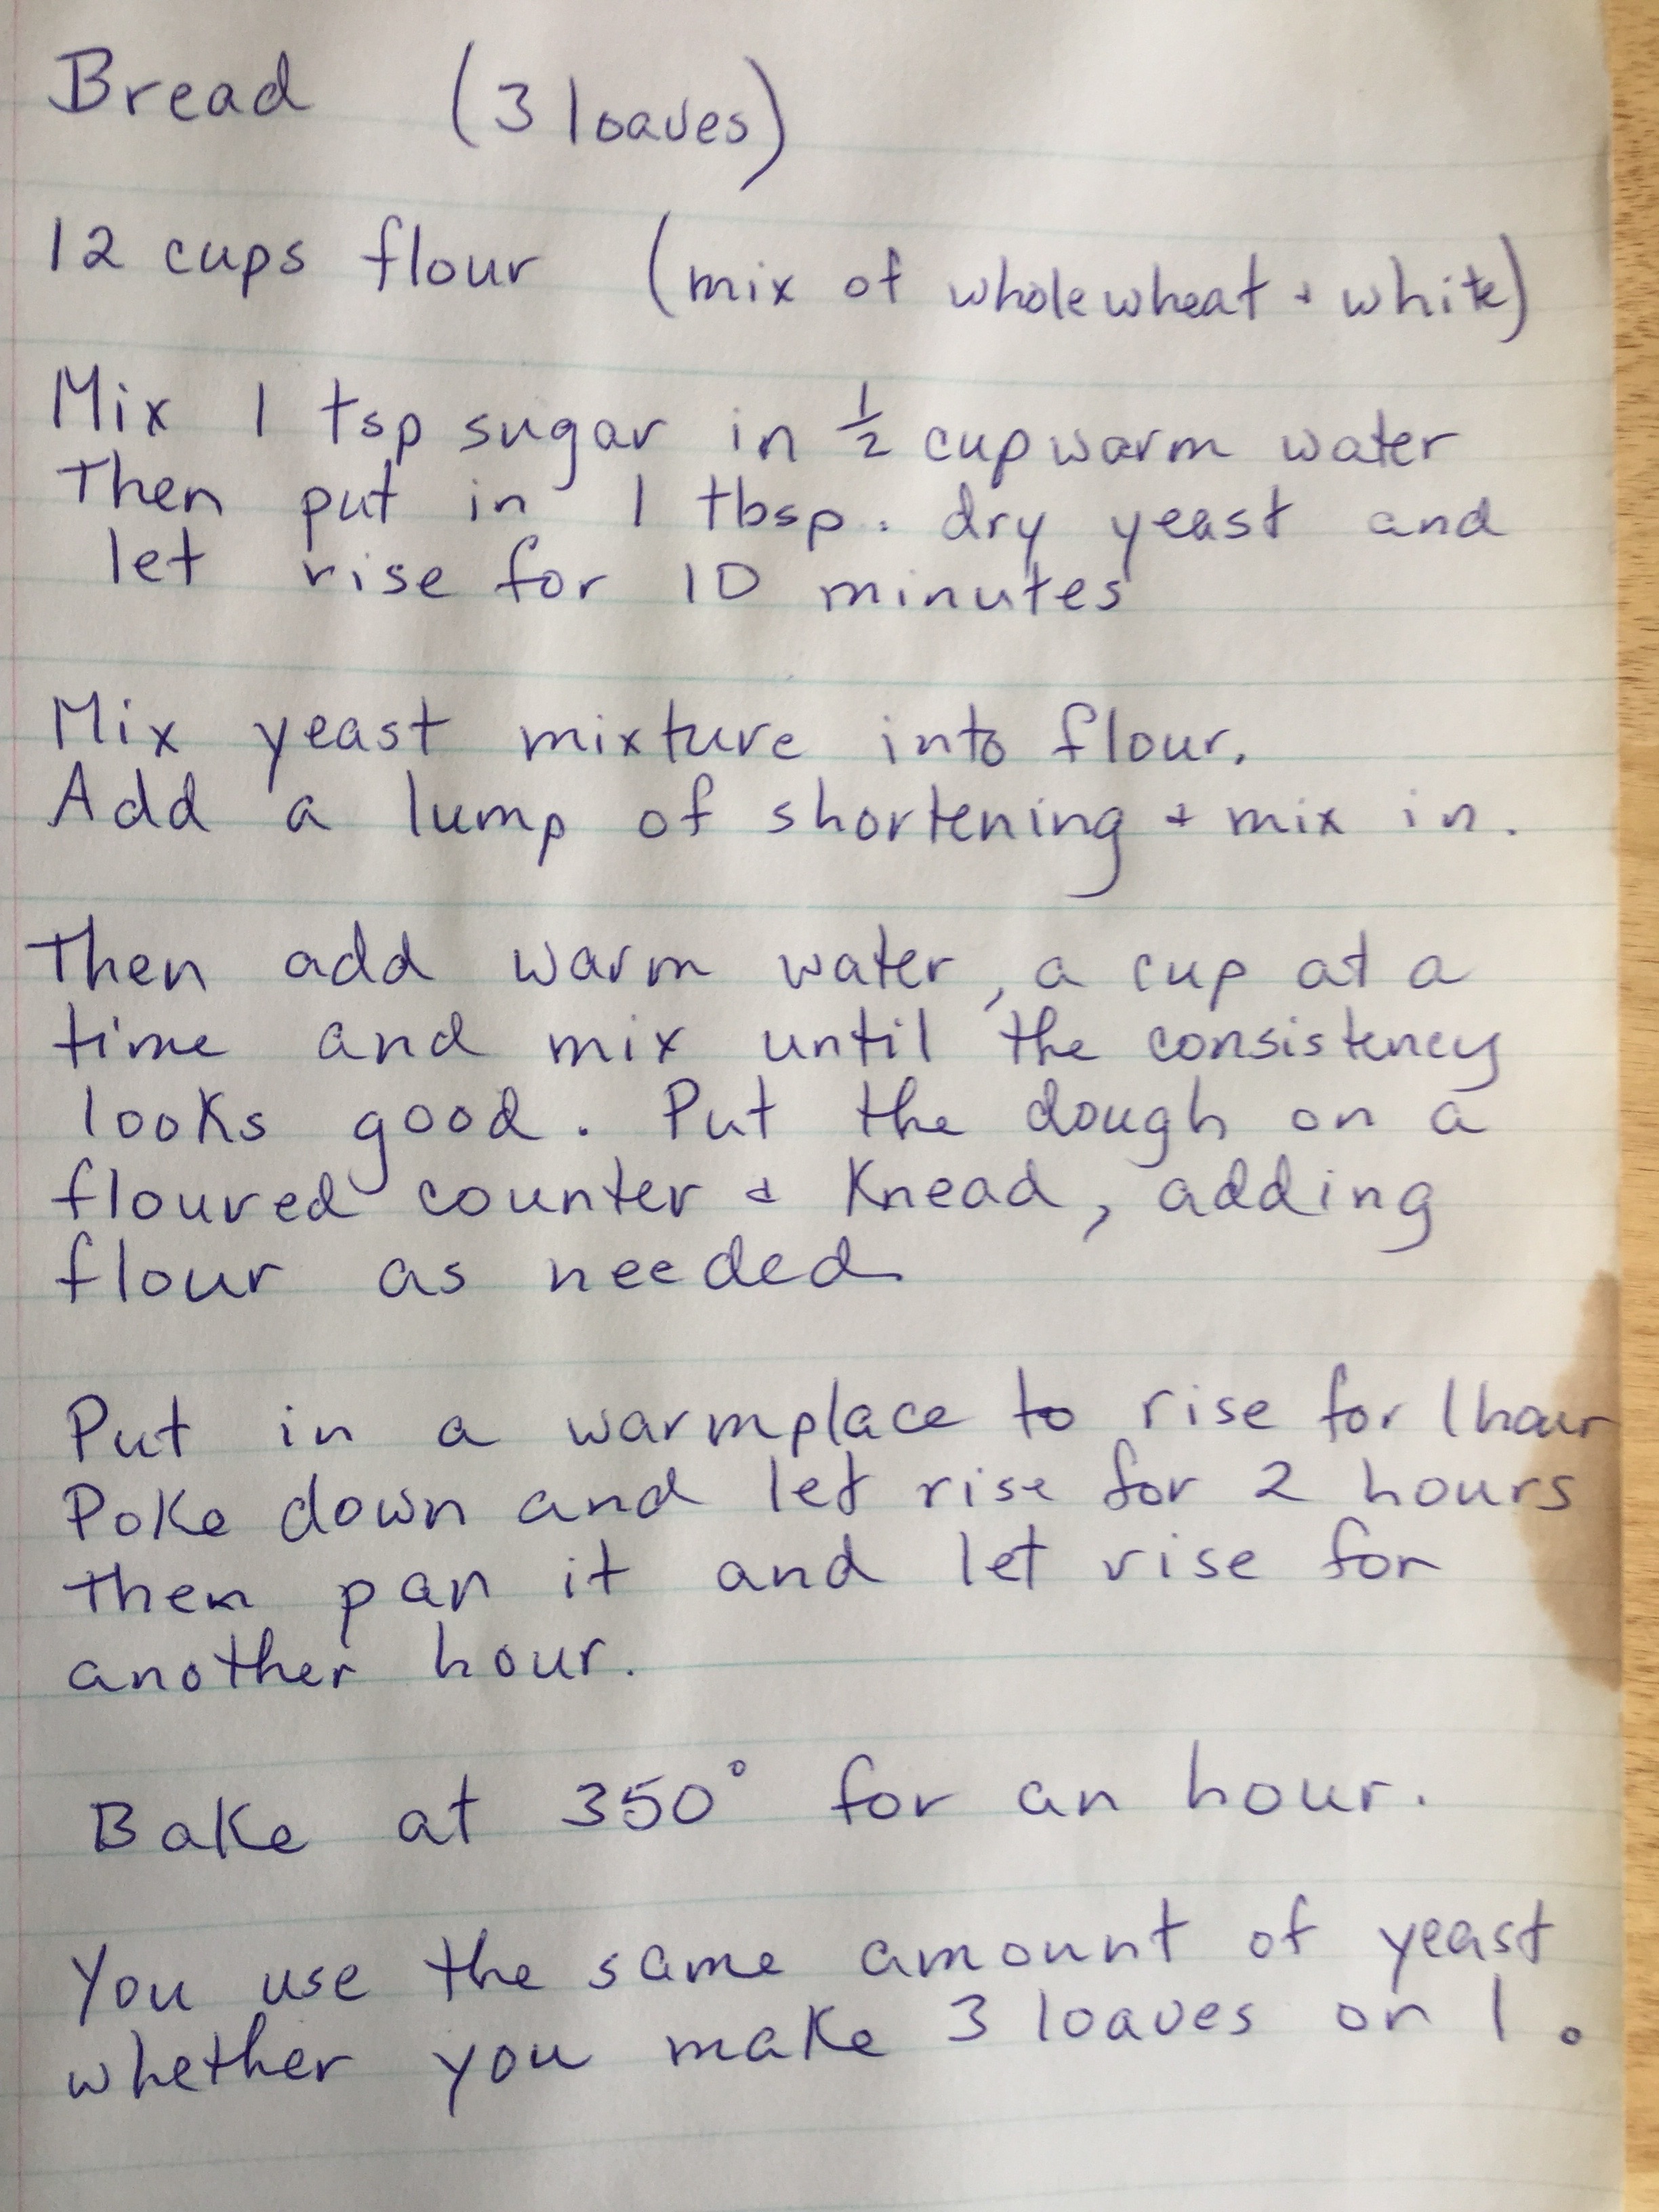 Bread (3 loaves)
12 cups flour (mix of whole wheat + white)
Mix 1 tsp sugar in 1/2 cup warm water
Then put in 1 tbsp. dry yeast and
let rise for 10 minutes
Mix yeast mixture into flour.
Add a lump of shortening + mix in.
Then add warm water, a cup at a
time and mix until the consistency
looks good. Put the dough on a
floured counter + Knead, adding
flour as needed
Put in a warm place to rise for 1 hour
Poke down and let rise for 2 hours
then pan it and let rise for
another hour.
Bake at 350° for an hour.
You use the same amount of yeast
whether you make 3 loaves or 1.